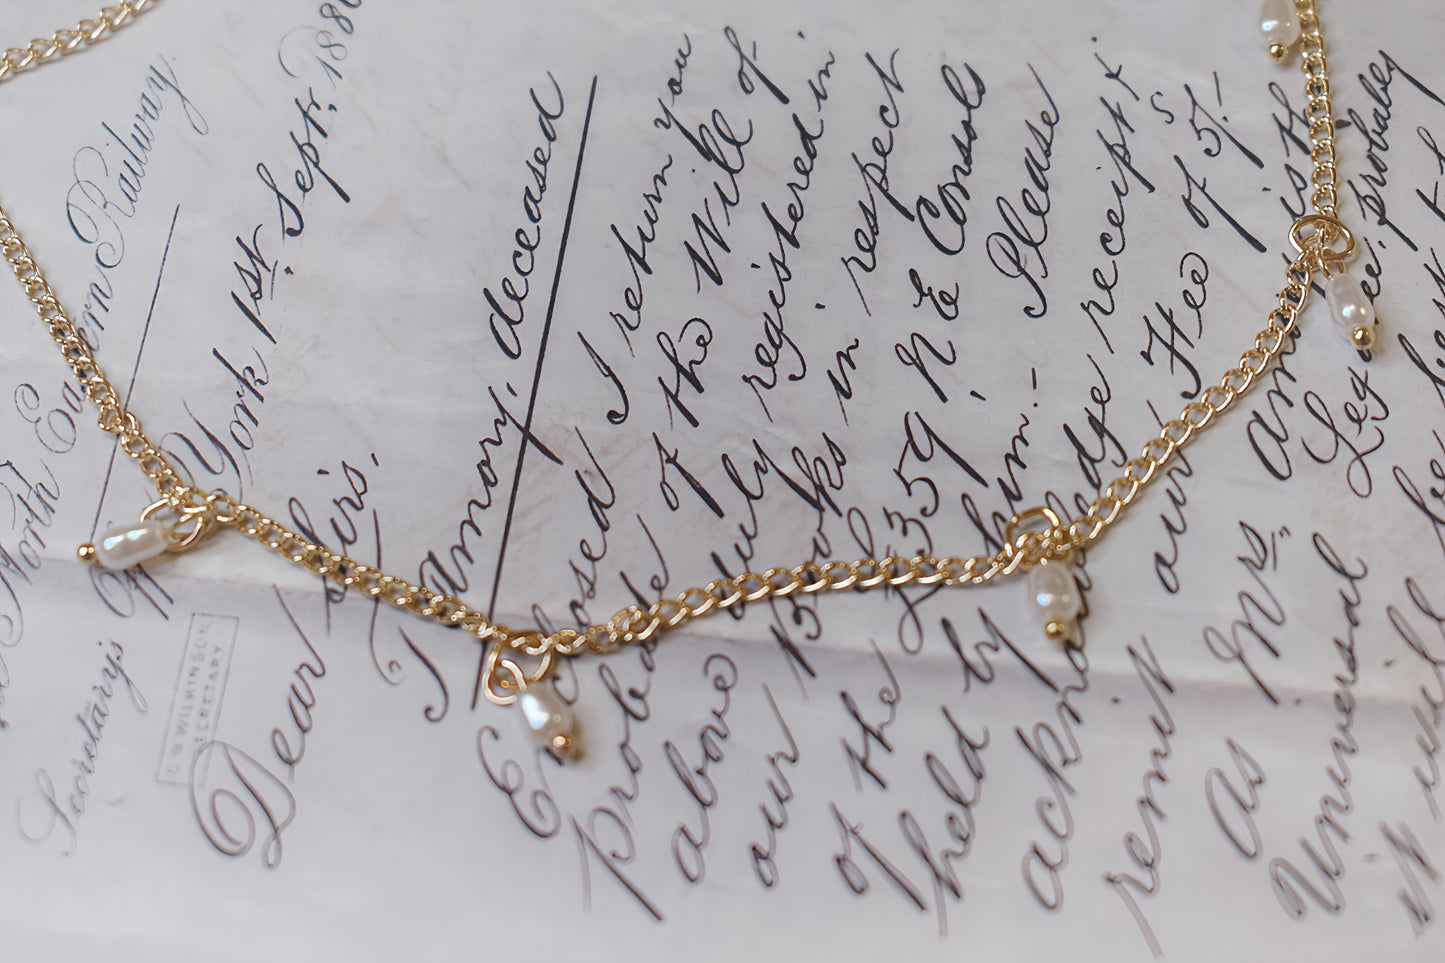 North Eastern Railway
Secretary's
C. N. WILKINSON
SECRETARY
York 1st Sept. 188
Dear Sirs.
T. Amory, deceased
Enclosed I return you
probate of the Will of
above duly registered in
our Books in respect
of the £5359 N E Consols
held by him. - Please
acknowledge receipt &
remit our Fee of 5/-
As Mrs Amory is the
Universal Legatee. probably
it will be best